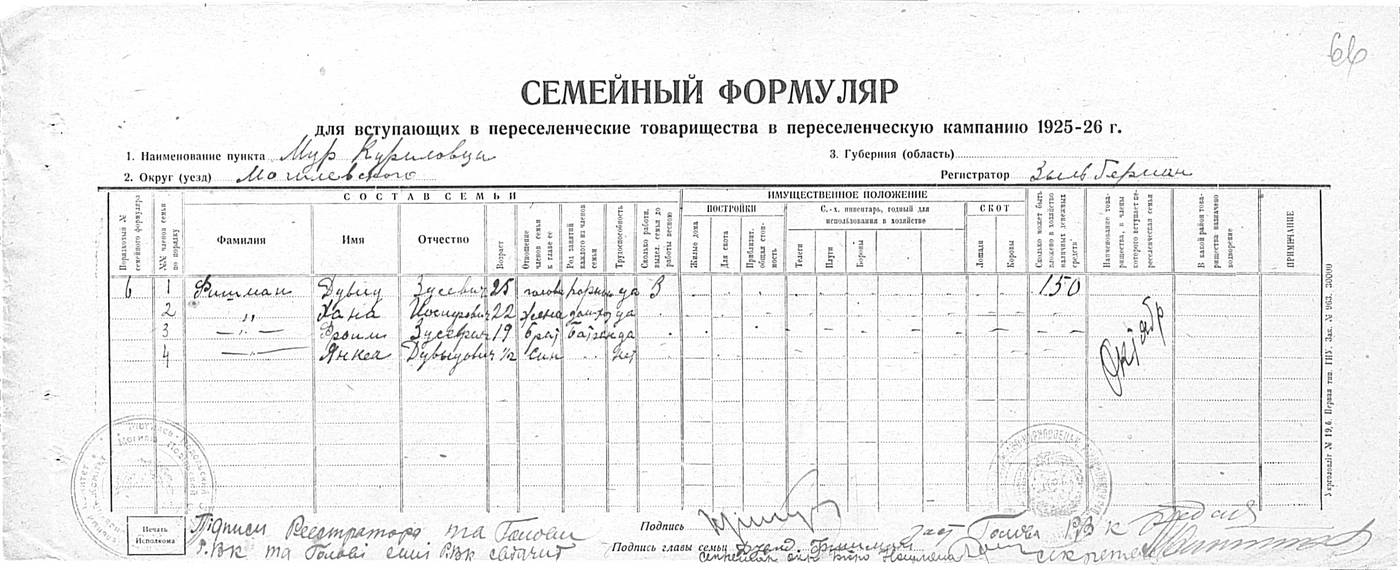 66
СЕМЕЙНЫЙ ФОРМУЛЯР
для вступающих в переселенческие товарищества в переселенческую кампанию 1925-26 г.
1. Наименование пункта Мур Куриловци
3. Губерния (область)
2. Округ (уезд) Могилевского
Регистратор Зильберман
СОСТАВ СЕМЬИ
ИМУЩЕСТВЕННОЕ ПОЛОЖЕНИЕ
ПОСТРОЙКИ
С.-х. инвентарь, годный для использования в хозяйстве
СКОТ
Порядковый № семейного формуляра
№№ членов семьи по порядку
Фамилия
Имя
Отчество
Возраст
Отношение членов семьи к главе ее
Род занятий каждого из членов семьи
Трудоспособность
Сколько работн. выдел. семья до работы весною
Жилые дома
Для скота
Приблизит. общая стоимость
Телеги
Плуги
Бороны
Лошади
Коровы
Сколько может быть вложено в хозяйство наличных денежных средств
Наименование товарищества, в члены которого вступает переселенческая семья
В какой район товарищества назначено водворение
ПРИМЕЧАНИЕ
6 1 Фишман Дувид Зусевич 25 голова да 3 150
2 " Хана 22 жена да
3 " Фроим Зусевич 19 брат да
4 Янкел Дувидович 1/2 син нет
Октябр
Укрголовліт № 19,6. Первая тип. ГПУ. Зак. № 963. 30000
Печать Исполкома
Підписи Реєстратора та Голови
РВК та Голови сімї РВК свідчит
Подпись
Подпись главы семьи Дувид Фишман
заст Голови РВК
Секретарь